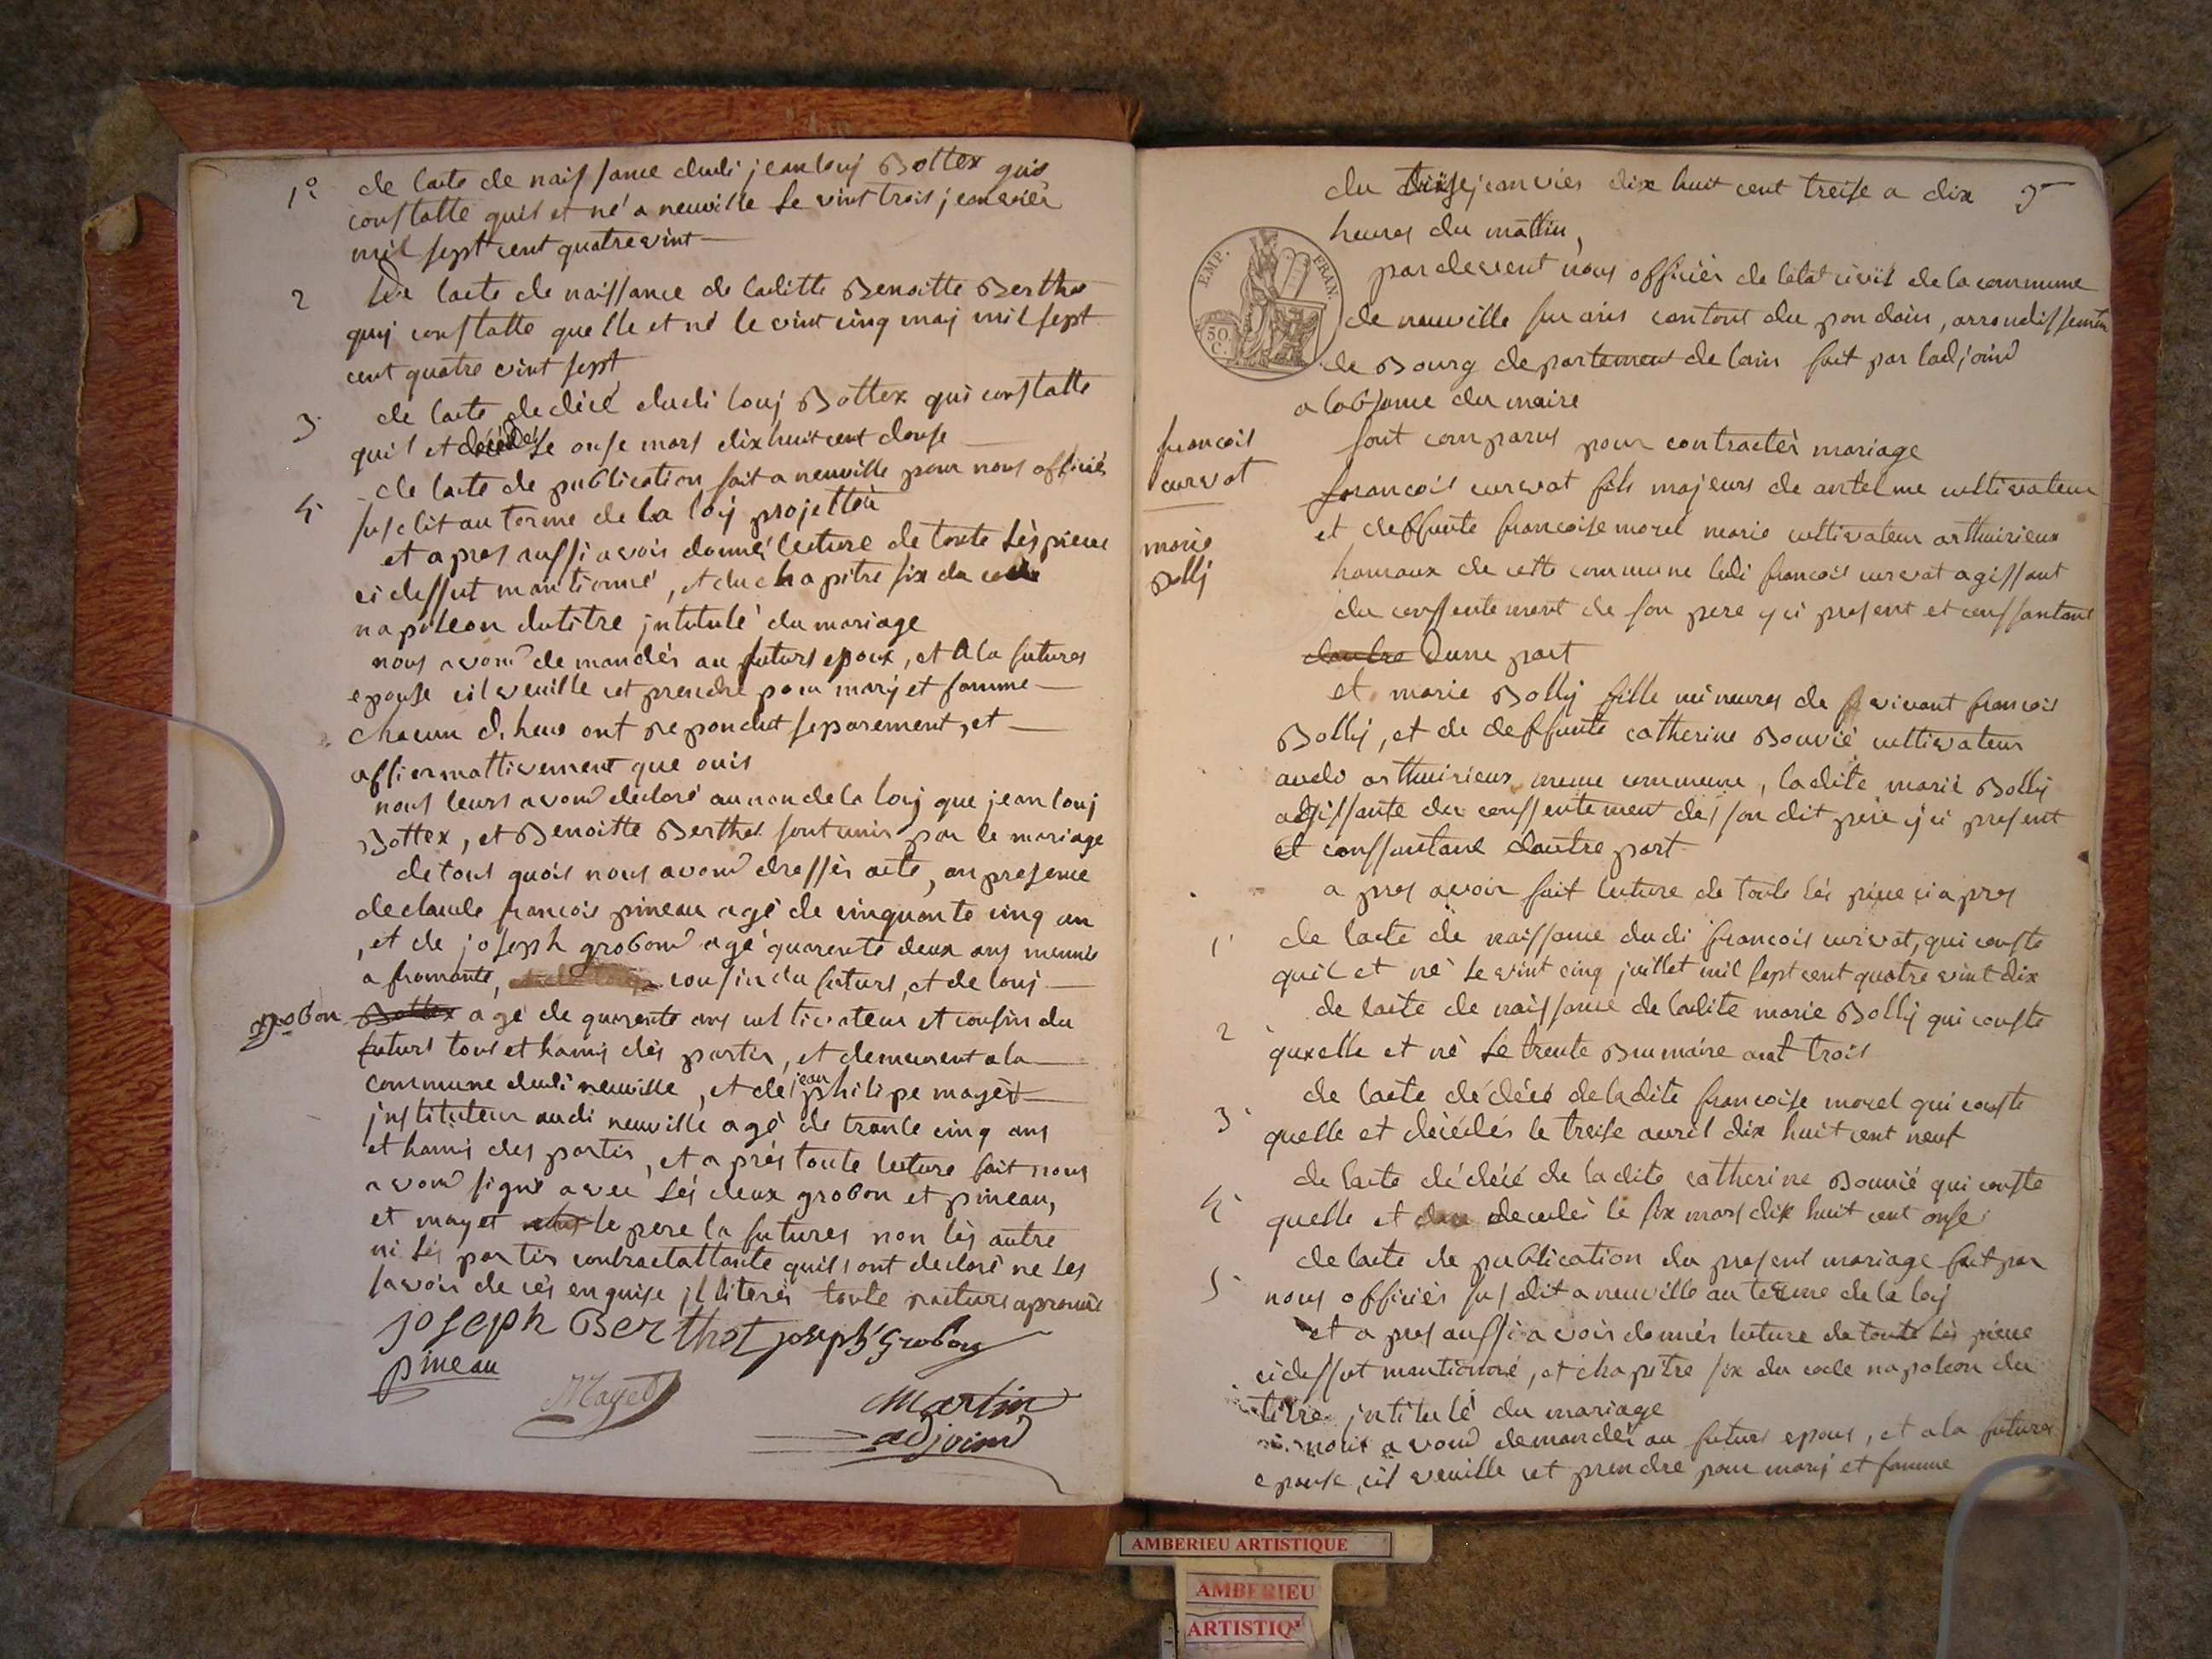 1º de lacte de naissance dudi jean louj Bottex quis
constatte quil et né a neuville le vint trois jeanvier
mil sept cent quatre vint
2 De lacte de naissance de laditte Benoitte Berthet
quij constatte quelle et né le vint cinq maj mil sept
cent quatre vint sept
3 de lacte de décé dudi louj Bottex qui constatte
quil et décédé le onse mars dix huit cent douse
4 de lacte de publication fait a neuville pour nous officiér
susdit au terme de la loij projettér
et apres aussi avois donné lecture de toute lés pieces
ci dessut mantionné, et du chapitre six du code
napoleon du titre jntitulé du mariage
nous avond demandér au futurs epoux, et a la futures
epouse cil veuille cet prendre pour marij et famme
chacun d heux ont repondut separement, et
affiermattivement que ouis
nous leurs avond declaré au non de la loij que jean louj
Bottex, et Benoitte Berthet sont unis par le mariage
de tous quois nous avond dressér acte, an presence
de claude francois pineau agé de cinquante cinq an
, et de joseph grobond agé quarente deux ans
a fromante, cousin du futurs, et de louj
grobon Bottex agé de quarente ans cultivateur et cousin du
futurs tous et hamij dés partis, et demeurent a la
commune dudi neuville, et de jean philipe mayet
jnstituteur audi neuville agé de trante cinq ans
et hamij des partis, et a prés toute lecture fait nous
avond signé avec lés deux grobon et pineau,
et mayet le pere la futures non lés autre
ni lés partis contractattante quils ont declaré ne les
savoir de cés enquise jlliterés toute
joseph Berthet joseph Grobon
pineau
Mayet
Martin
adjoind
du treise jeanvier dix huit cent treise a dix 5
heures du mattin,
EMP. FRAN.
50 C.
par devent nous officiér de létat civil de la commune
de neuville sur ains cantont du pon dains, arrondissement
de Bourg departement de lains fait par ladjoind
a labsance du maire
francois
curvat
sont comparus pour contractér mariage
francois curvat fils majeurs de antelme cultivateur
marie
Bollij
et deffunte francoise morel marie cultivateur a thuirieux
hamaux de cette commune ledi francois curvat agissant
du consentement de son pere yci present et consantant
dautre Dune part
et marie Bollij fille mineures de vivant francois
Bollij, et de deffunte catherine Bouvié cultivateur
audi a thuirieux meme commune, ladite marie Bollij
agissante du consentement dés son dit pere yci present
et consantant dautre part
a pres avoir fait lecture de toute lés piece ci apres
1 de lacte de naissance dudi francois curvat, qui conste
quil et né le vint cinq juillet mil sept cent quatre vint dix
2 de lacte de naissance de ladite marie Bollij qui conste
quelle et né le trente Brumaire ant trois
3 de lacte dé décé de ladite francoise morel qui conste
quelle et décédés le treise avril dix huit cent neuf
4 de lacte dé décé de la dite catherine Bouvié qui conste
quelle et decedés le six mars dix huit cent onse
5 de lacte de publication du present mariage fait par
nous officiér susdit a neuville au terme de la loij
et a pres aussi avois donnér lecture de toute lés piece
ci dessut mantionné, et chapitre six du code napoleon du
titre jntitulé du mariage
nous avond demandér au futurs epous, et a la futures
epouse, cil veuille cet prendre pour marij et famme
AMBERIEU ARTISTIQUE
AMBERIEU
ARTISTIQU